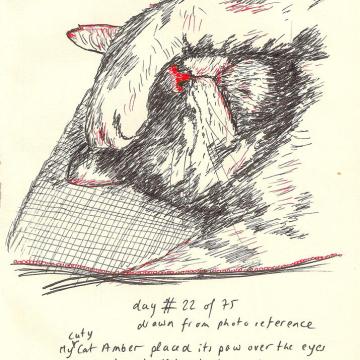 day # 22 of 75
drawn from photo reference
cuty
My Cat Amber placed its paw over the eyes